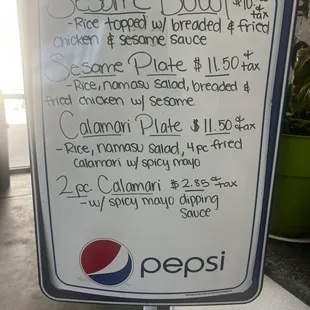 Sesame Bowl $10.
& tax
-Rice topped w/ breaded & fried
chicken & sesame sauce
Sesame Plate $ 11.50 & tax
-Rice, namasu salad, breaded &
fried chicken w/ sesame
Calamari Plate $ 11.50 & tax
-Rice, namasu salad, 4pc fried
calamari w/ spicy mayo
2 pc Calamari $2.85 & tax
-w/ spicy mayo dipping
sauce
pepsi